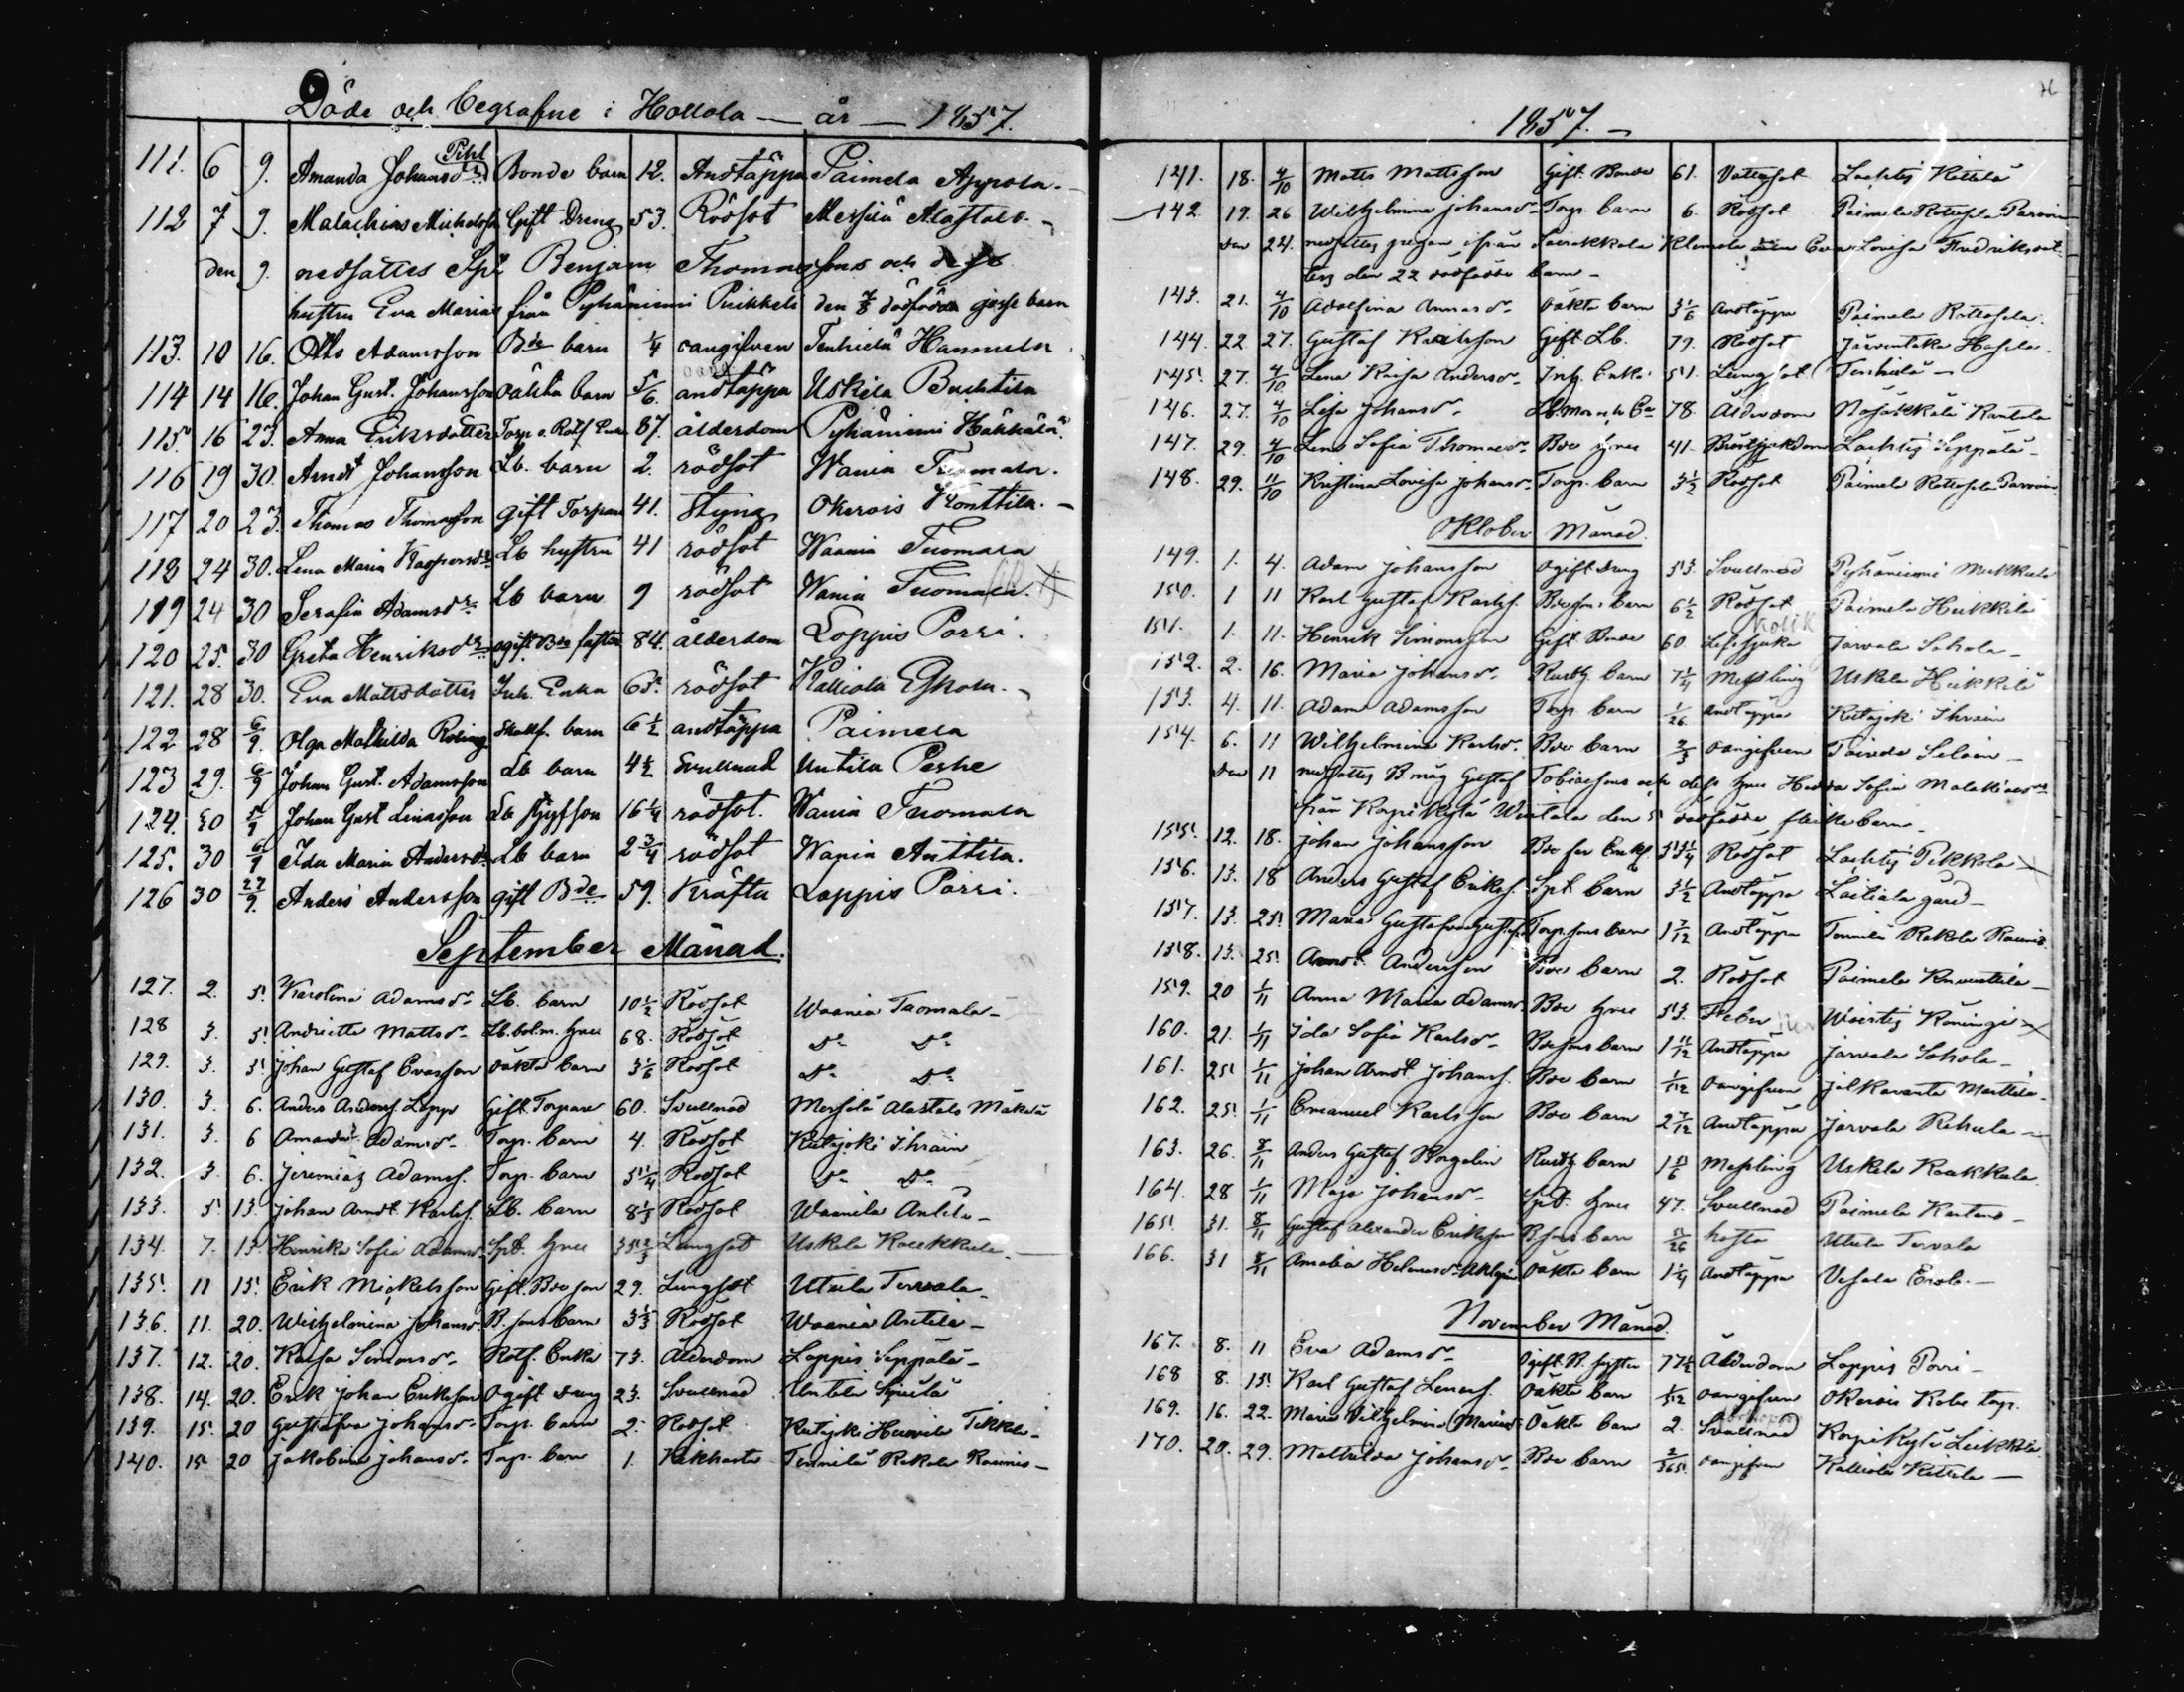 Döde och begrafne i Hollola — år — 1857.
Pihl
111. 6 9. Amanda Johansdr Bonde barn 12. Andtäppa Paimela Appola.
112 7 9. Malachias Michelsson Gift Dreng 53. Rödsot Messilä Alastalo.
den 9. nedsattes Sp. Benjam Thomassons och dess
hustru Eva Marias från Pyhäniemi Puikkeli den 7/8 dödfödda gosse barn
113. 10 16. Otto Adamsson Bde barn 1/4 oangifven Tenhielä Hannula
114 14 16. Johan Gust. Johansson oäkta barn 5/6. andtäppa Uskila
115. 16 23. Anna Eriksdotter Torp. e. Rotf Enka 87. ålderdom Pyhäniemi Häkkälä.
116 19 30. Arndt Johansson Lb. barn 2. rödsot Wania Tuomala.
117 20 23. Thomas Thomasson gift Torpare 41. Styng Okerois Konttila. —
118 24 30. Lena Maria Kaspersdr Lb hustru 41 rödsot Waania Tuomala
119 24 30 Serafia Adamsdr Lb barn 9 rödsot Wania Tuomala.
120 25. 30 Greta Henriksdr ogift Bde faster 84. ålderdom Loppis Porri.
121. 28 30. Eva Mattsdotter Inh. Enka 63. rödsot Kalliola Eskola.
122 28 6/9. Olga Mathilda Rosing Skallf. barn 6 1/2 andtäppa Paimela
123 29. 6/9 Johan Gust. Adamsson Lb barn 4 1/2 Svullnad Untila Peske
124. 30 5/9 Johan Gust Linasson Lb styfson 16 1/4 rödsot. Wania Tuomala
125. 30 6/9 Ida Maria Andersdr Lb barn 2 3/4 rödsot Wania Anttila.
126 30 27/9. Anders Andersson gift Bde 59. Kräfta Loppis Porri.
September Månad.
127. 2. 5. Karolina Adamsdr Lb. barn 10 1/2 Rödsot Waania Tuomala —
128 3. 5. Andrietta Mattsdr Lb. hru 68. Rödsot Do Do
129. 3. 5. Johan Gustaf Evasson oäkta barn 3 1/6 Rödsot Do Do
130. 3. 6. Anders Lepp Gift Torpare 60. Svullnad Messilä Alastalo Mäkelä
131. 3. 6 Amanda Adamsdr Torp. barn 4. Rödsot Kutajoki Ihrain
132. 3. 6. Jeremias Adamss. Torp. barn 5 1/4 Rödsot Do Do
133. 5. 13. Johan Arndt Karlss. Lb. barn 8 1/3 Rödsot Waania Antila —
134. 7. 13. Henrika Sofia Adamsdr Spb. hru 35 2/3 Lungsot Uskila Kaukkala —
135. 11 15. Erik Mickelsson Gift. Bde son 29. Lungsot Utula Tervala —
136. 11. 20. Wilhelmina Johansdr B. sons barn 3 1/3 Rödsot Waania Antila —
137. 12. 20. Kaisa Simonsdr Rotf. Enka 73. Ålderdom Loppis Seppälä —
138. 14. 20. Erik Johan Eriksson Ogift dreng 23. Svullnad Untila
139. 15. 20 Gustafva Johansdr Torp. barn 2. Rödsot Kutajoki Huovila Tikkla —
140. 15 20 Jakobina Johansdr Torp. barn 1. Kikhosta Tennilä Rekola Raunis —
1857. —
141. 18. 4/10 Matts Mattsson Gift. Bonde 61. Vattusot Lachtis Kittilä
142. 19. 26 Wilhelmina Johansdr Torp. barn 6. Rödsot Paimela Rottosela Parvia
den 24. nedsattes pigan ifrån Sairakkala Klemola Eva Lovisa Fredriksdot-
ters den 22 dödfödde barn —
143. 21. 4/10 Adolfina Annasdr Oäkta barn 3 1/6 Andtäppa Paimela Rottosela.
144. 22 27. Gustaf Gift Lb. 79. Rödsot Järventaka Hasela.
145. 27. 4/10 Lena Kaisa Andersdr Inh. Enka 51. Lungsot Tenhielä —
146. 27. 4/10 Lisa Johansdr 78. Ålderdom Nojakkala Rantala
147. 29. 4/10 Lena Sofia Thomasdr Bde hru 41. Bröstsjukdom Lachtis Seppälä —
148. 29. 11/10 Kristina Lovisa Johansdr Torp. barn 3 1/2 Rödsot Paimela Rottosela Parvia
Oktober Månad.
149. 1. 4. Adam Johansson Ogift dreng 53. Svullnad Pyhäniemi Mukkula
150. 1 11 Karl Gustaf Karlss. Bde sons barn 6 1/2 Rödsot Paimela Heikkilä
Kolik
151. 1. 11. Henrik Simonsson Gift Bonde 60 Lifssjuka Jarvala Sohola —
152. 2. 16. Maria Johansdr Rusth. barn 7 1/4 Messling Uskila Heikkilä
153. 4. 11. Adam Adamsson Torp. barn 1/26 Andtäppa Kutajoki Ihrain
154. 6. 11 Wilhelmina Karlsdr Bde barn 2/3 Oangifven Toivola Seloin —
den 11 nedsattes B. måg Gustaf Tobiassons och dess hru Hedda Sofia Malakiasdr
från Korpikylä Wintala den 5 dödfödde flickebarn —
155. 12. 18. Johan Johansson Bde far Enkl. Rödsot Lachtis Pekkola
156. 13. 18 Anders Gustaf Erikss. Spb. barn 3 1/2 Andtäppa Laitiala gård —
157. 13. 25. Maria Gustafva Gustafsdr Torp. sons barn 1 7/12 Andtäppa Tennilä Rekola Raunis
158. 13. 25. Arndt Andersson Bde barn 2. Rödsot Paimela
159. 20 1/11 Anna Maria Adamsdr Bde hru 53. Feber Koningi
160. 21. 1/11 Ida Sofia Karlsdr Bde sons barn 1 11/12 Andtäppa Jarvala Sohola —
161. 25. 1/11 Johan Arndt Johanss. Bde barn 1/12 Oangifven Jalkaranta Marttila —
162. 25. 1/11 Emanuel Karlsson Bde barn 2 7/12 Andtäppa Jarvala Rihula —
163. 26. 8/11 Anders Gustaf Borgelin Rusth barn Messling Uskila Kaukkala
164. 28 1/11 Maja Johansdr Spb. hru 47. Svullnad Paimela —
165. 31. 8/11 Gustaf Alexander Eriksson B sons barn 5/26 hosta Utula Tervala
166. 31 8/11 Amalia Helenasdr Oäkta barn 1 1/4 Andtäppa Vesala Erola —
November Månad.
167. 8. 11 Eva Adamsdr Ogift B. syster 77 1/2 Ålderdom Loppis Porri —
168 8. 15. Karl Gustaf Lenass. Oäkta barn 1/12 Oangifven Okerois torp.
169. 16. 22. Maria Vilhelmina Mariasdr Oäkta barn 2. Svullnad Korpikylä Leikkola
170. 20. 29. Mathilda Johansdr Bde barn 2/365. Oangifven Kalliola Kettila —